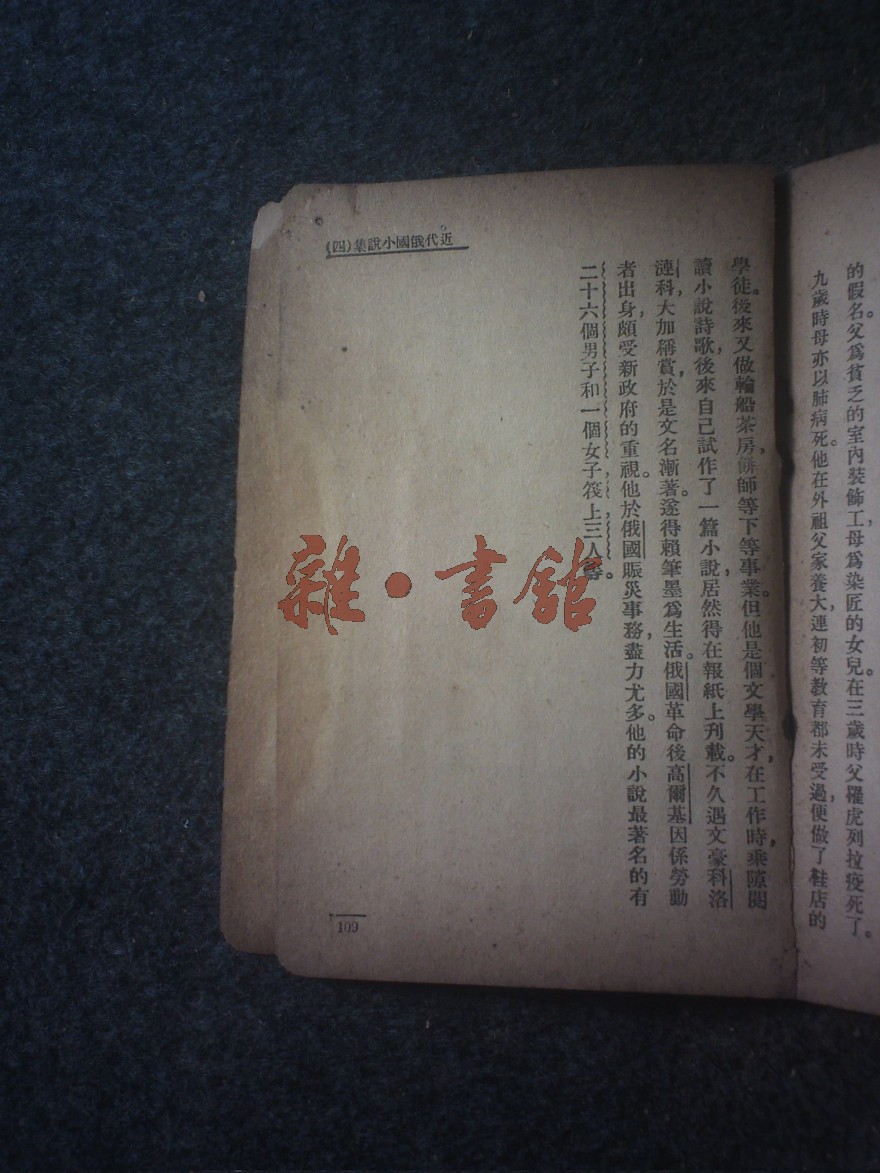 的假名。父爲貧乏的室內裝飾工，母爲染匠的女兒。在三歲時父罹虎列拉疫死了。
九歲時母亦以肺病死。他在外祖父家養大，連初等教育都未受過，便做了鞋店的
近代俄國小說集(四)
學徒。後來又做輪船茶房，餅師等下等事業。但他是個文學天才，在工作時，乘隙閱
讀小說詩歌，後來自己試作了一篇小說，居然得在報紙上刊載。不久遇文豪科洛
漣科，大加稱賞，於是文名漸著。遂得賴筆墨爲生活。俄國革命後高爾基因係勞動
者出身，頗受新政府的重視。他於俄國賑災事務，盡力尤多。他的小說最著名的有
二十六個男子和一個女子，筏上，三人等。
109
雜·書館